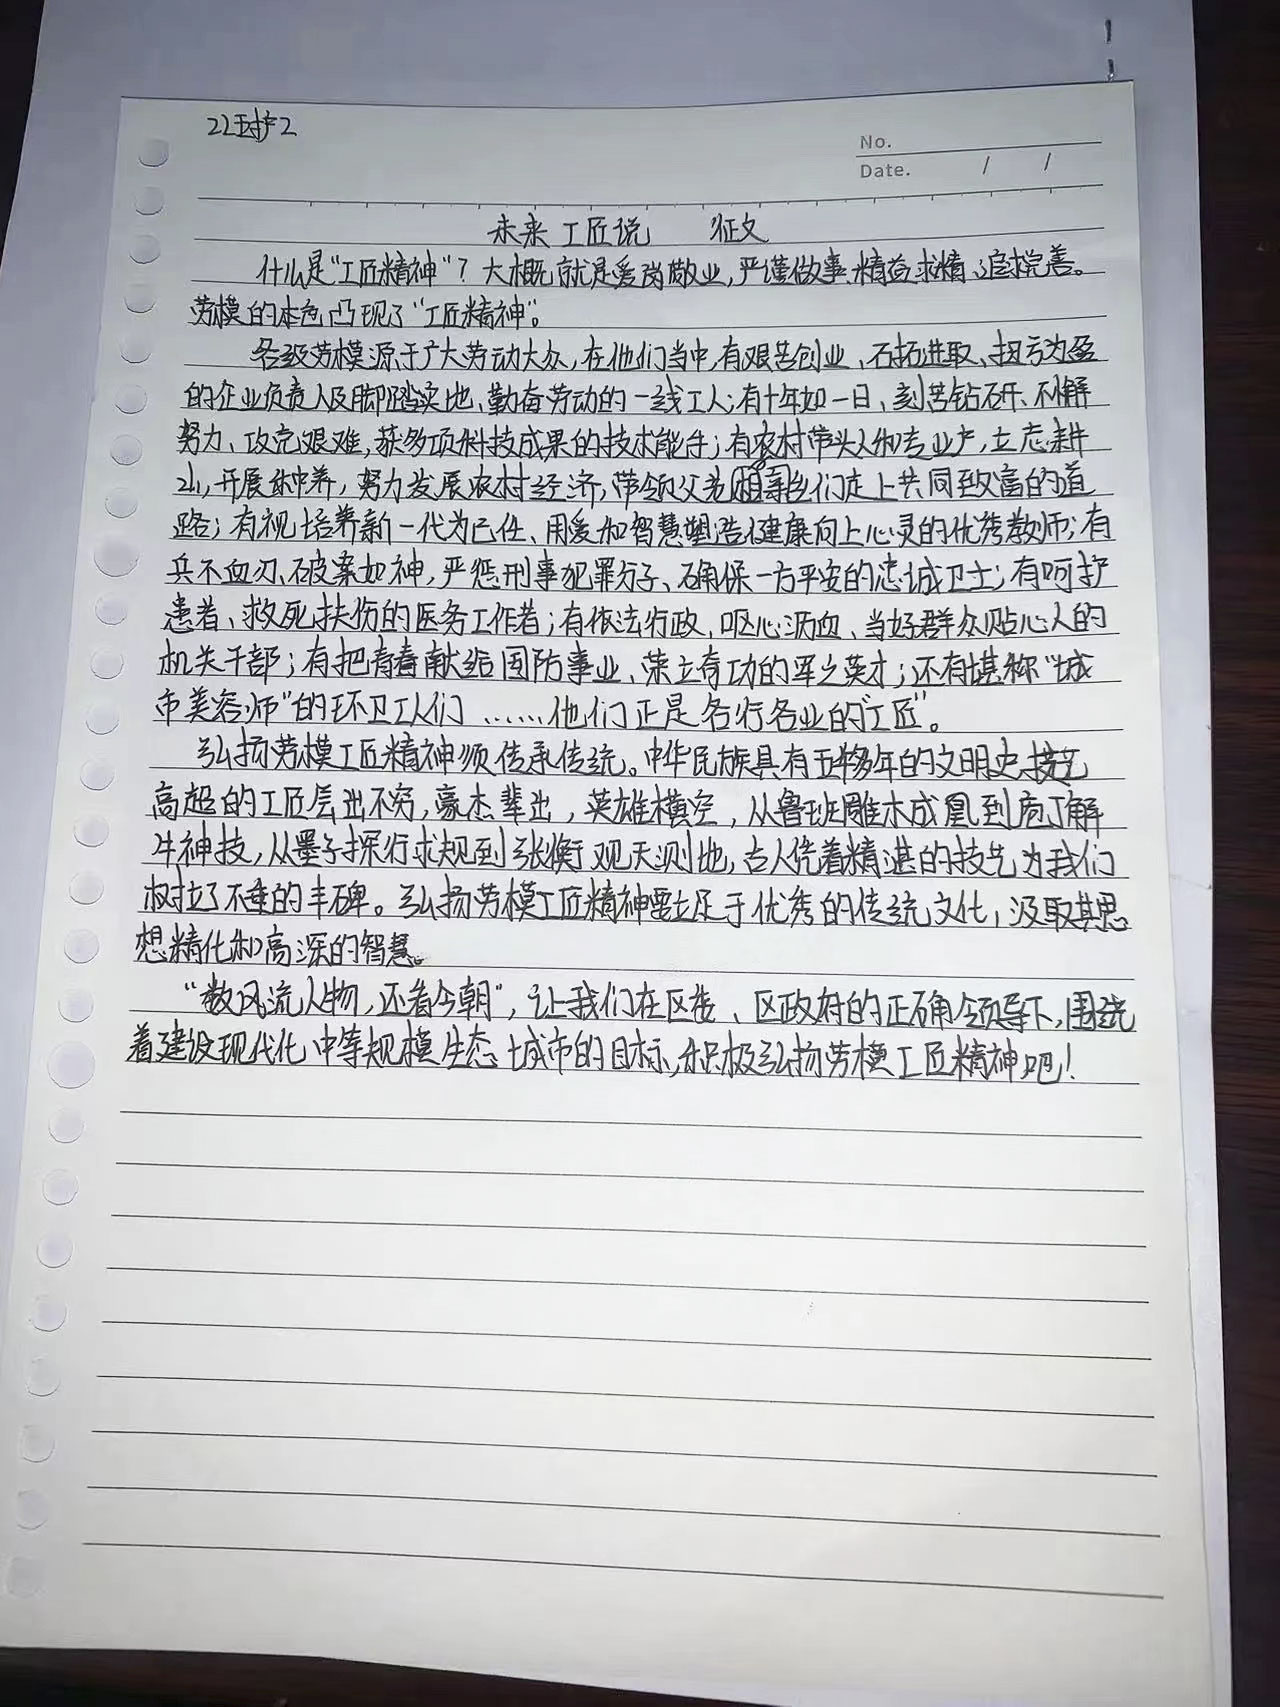 22护2
No.
Date. / /
未来工匠说 征文
什么是“工匠精神”？大概就是爱岗敬业，严谨做事、精益求精、追求完善。
劳模的本色凸现了“工匠精神”。
各级劳模源于广大劳动大众，在他们当中，有艰苦创业、石扬进取、扭亏为盈
的企业负责人及脚踏实地、勤奋劳动的一线工人；有十年如一日、刻苦钻研、不懈
努力、攻克艰难，获多项科技成果的技术能手；有农村带头人和专业户，立志耕
山，开展种养，努力发展农村经济，带领父老乡亲们走上共同致富的道
路；有视培养新一代为己任、用爱和智慧塑造健康向上心灵的优秀教师；有
兵不血刃、破案如神，严惩刑事犯罪分子、确保一方平安的忠诚卫士；有呵护
患者、救死扶伤的医务工作者；有依法行政、呕心沥血、当好群众贴心人的
机关干部；有把青春献给国防事业、荣立奇功的军之英才；还有堪称“城
市美容师”的环卫工人们……他们正是各行各业的“工匠”。
弘扬劳模工匠精神须传承传统。中华民族具有五千多年的文明史，技艺
高超的工匠层出不穷，豪杰辈出，英雄横空，从鲁班雕木成凰到庖丁解
牛神技，从墨子探行求规到张衡观天测地，古人凭着精湛的技艺为我们
树立了不垂的丰碑。弘扬劳模工匠精神要立足于优秀的传统文化，汲取其思
想精化和高深的智慧。
“数风流人物，还看今朝”，让我们在区委、区政府的正确领导下，围绕
着建设现代化中等规模生态城市的目标，积极弘扬劳模工匠精神吧！